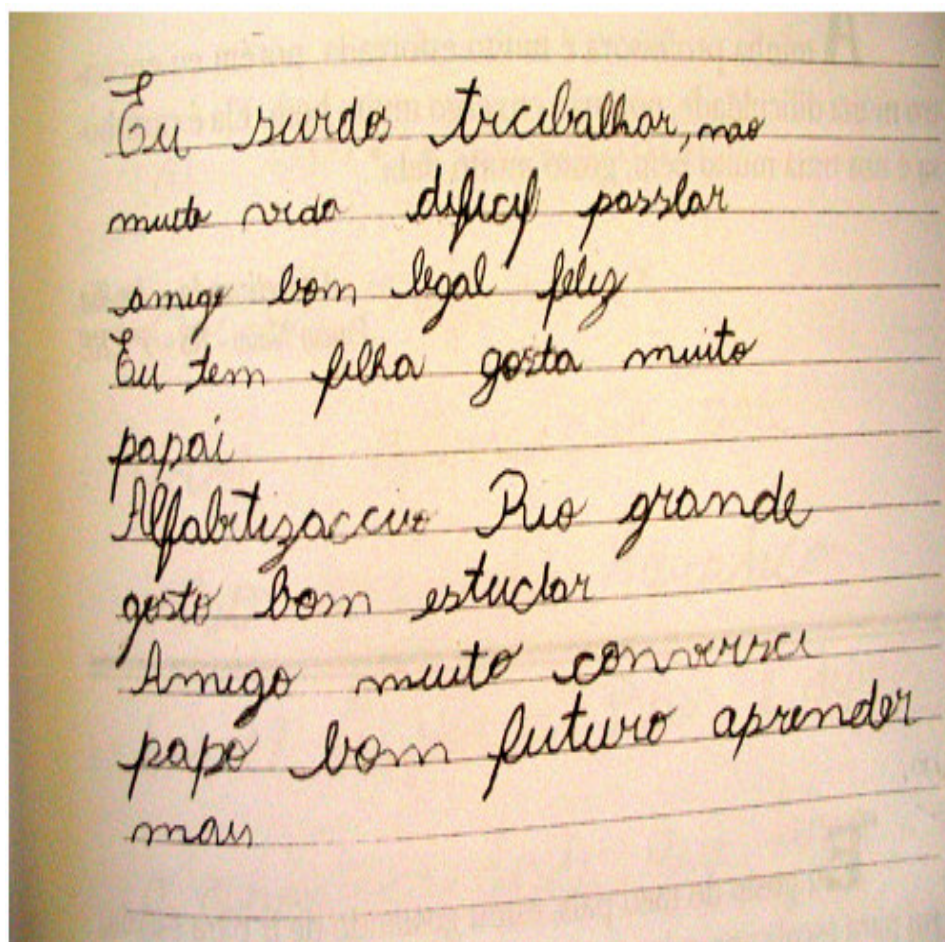 Eu surdos trabalhar, não
muito vida dificil passlar
amigo bom legal feliz
Eu tem filha gosta muito
papai
Alfabetizaccuo Rio grande
gosto bom estudar
Amigo muito conversa
papo bom futuro aprender
mais